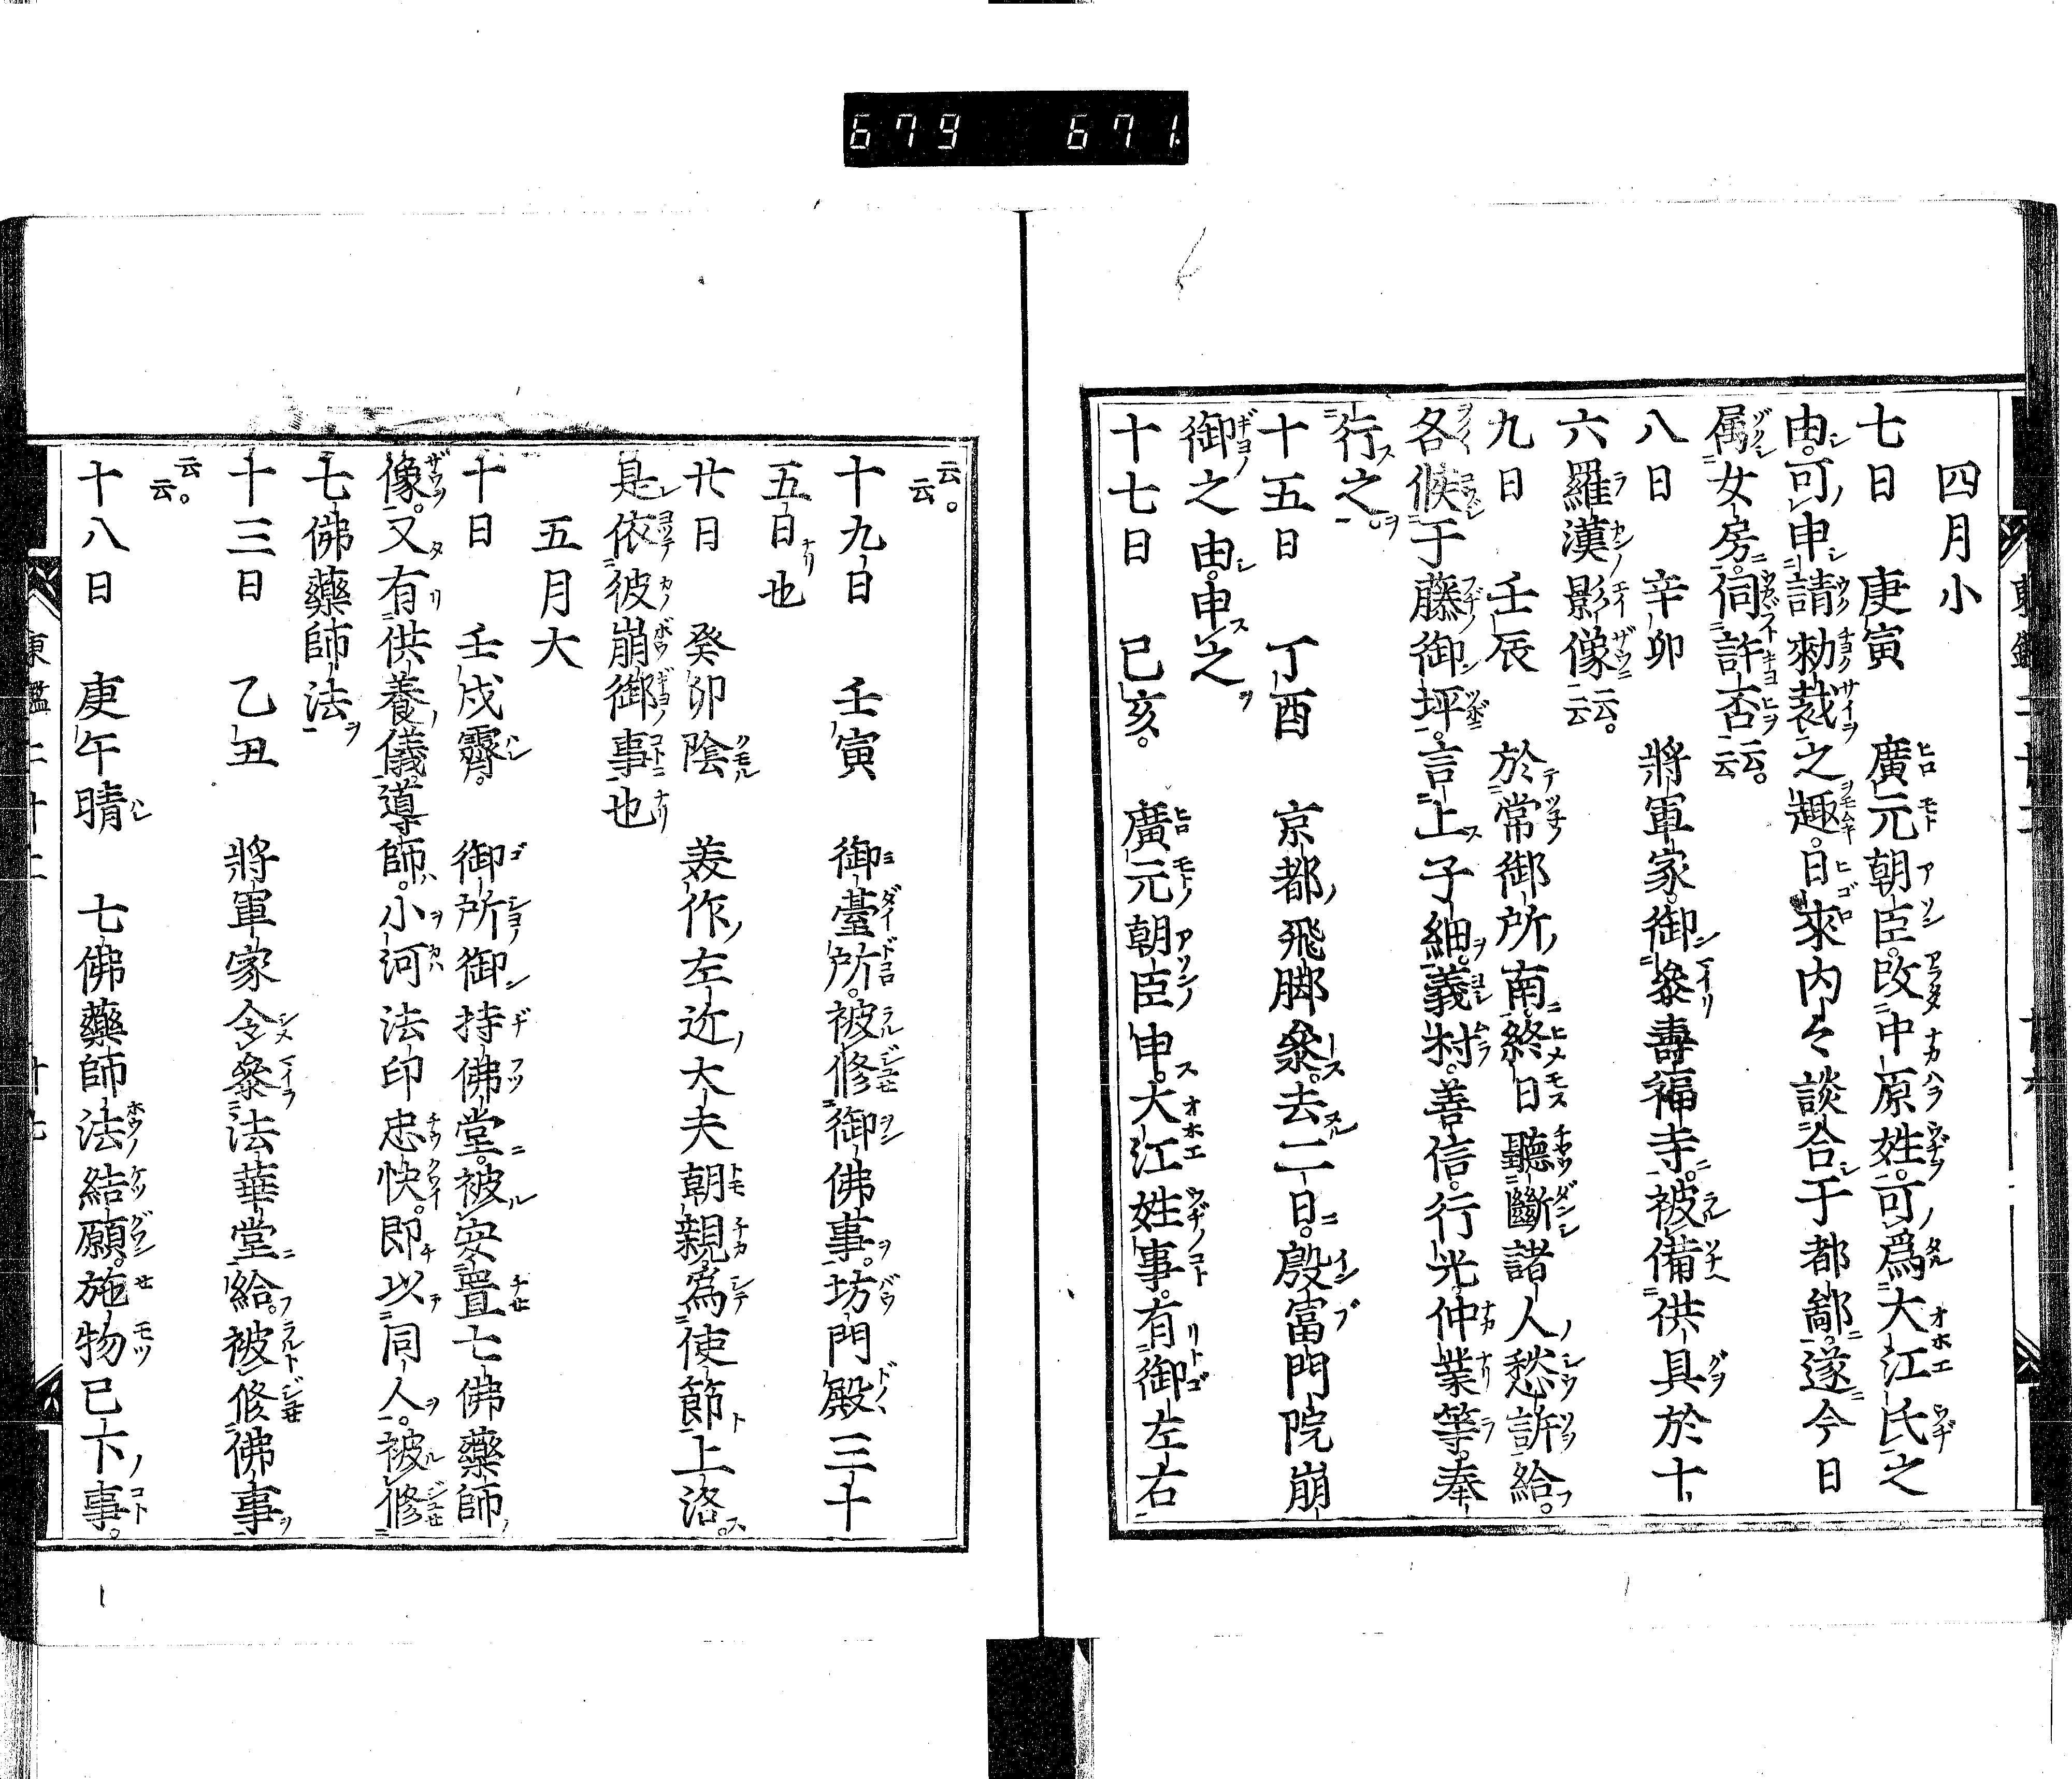 679 671
四月小
七日 庚寅 廣元朝臣。改中原姓。可爲大江氏之
由。可申請勅裁之趣。日來内々談合于都鄙。遂今日
属女房。伺許否云云。
八日 辛卯 將軍家。御參壽福寺。被備供具於十
六羅漢影像云云。
九日 壬辰 於常御所南。終日聽斷諸人愁訴給。
各候于藤御坪。言上子細。義村。善信。行光。仲業等。奉
行之。
十五日 丁酉 京都飛脚參。去二日。殷富門院崩
御之由。申之
十七日 己亥。 廣元朝臣申。大江姓事。有御左右
云云。
十九日 壬寅 御臺所。被修御佛事。坊門殿三十
五日也
廿日 癸卯陰 美作左近大夫朝親爲使節上洛。
是依彼崩御事也
五月大
十日 壬戌霽。 御所御持佛堂。被安置七佛藥師
像。又有供養儀導師。小河法印忠快。即以同人。被修
七佛藥師法
十三日 乙丑 將軍家令參法華堂給。被修佛事
云云。
十八日 庚午晴 七佛藥師法結願。施物已下事。